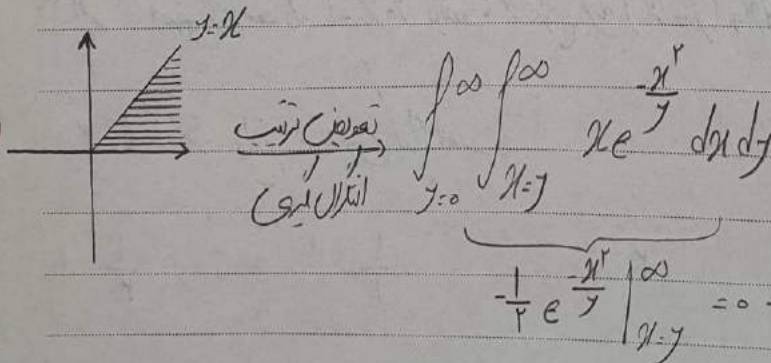 y=x
تعویض ترتیب
انتگرال گیری
∫_{y=0}^{∞} ∫_{x=y}^{∞} x e^{-x^۲/y} dx dy
-۱/۲ e^{-x^۲/y} |_{x=y}^{∞} = 0 -